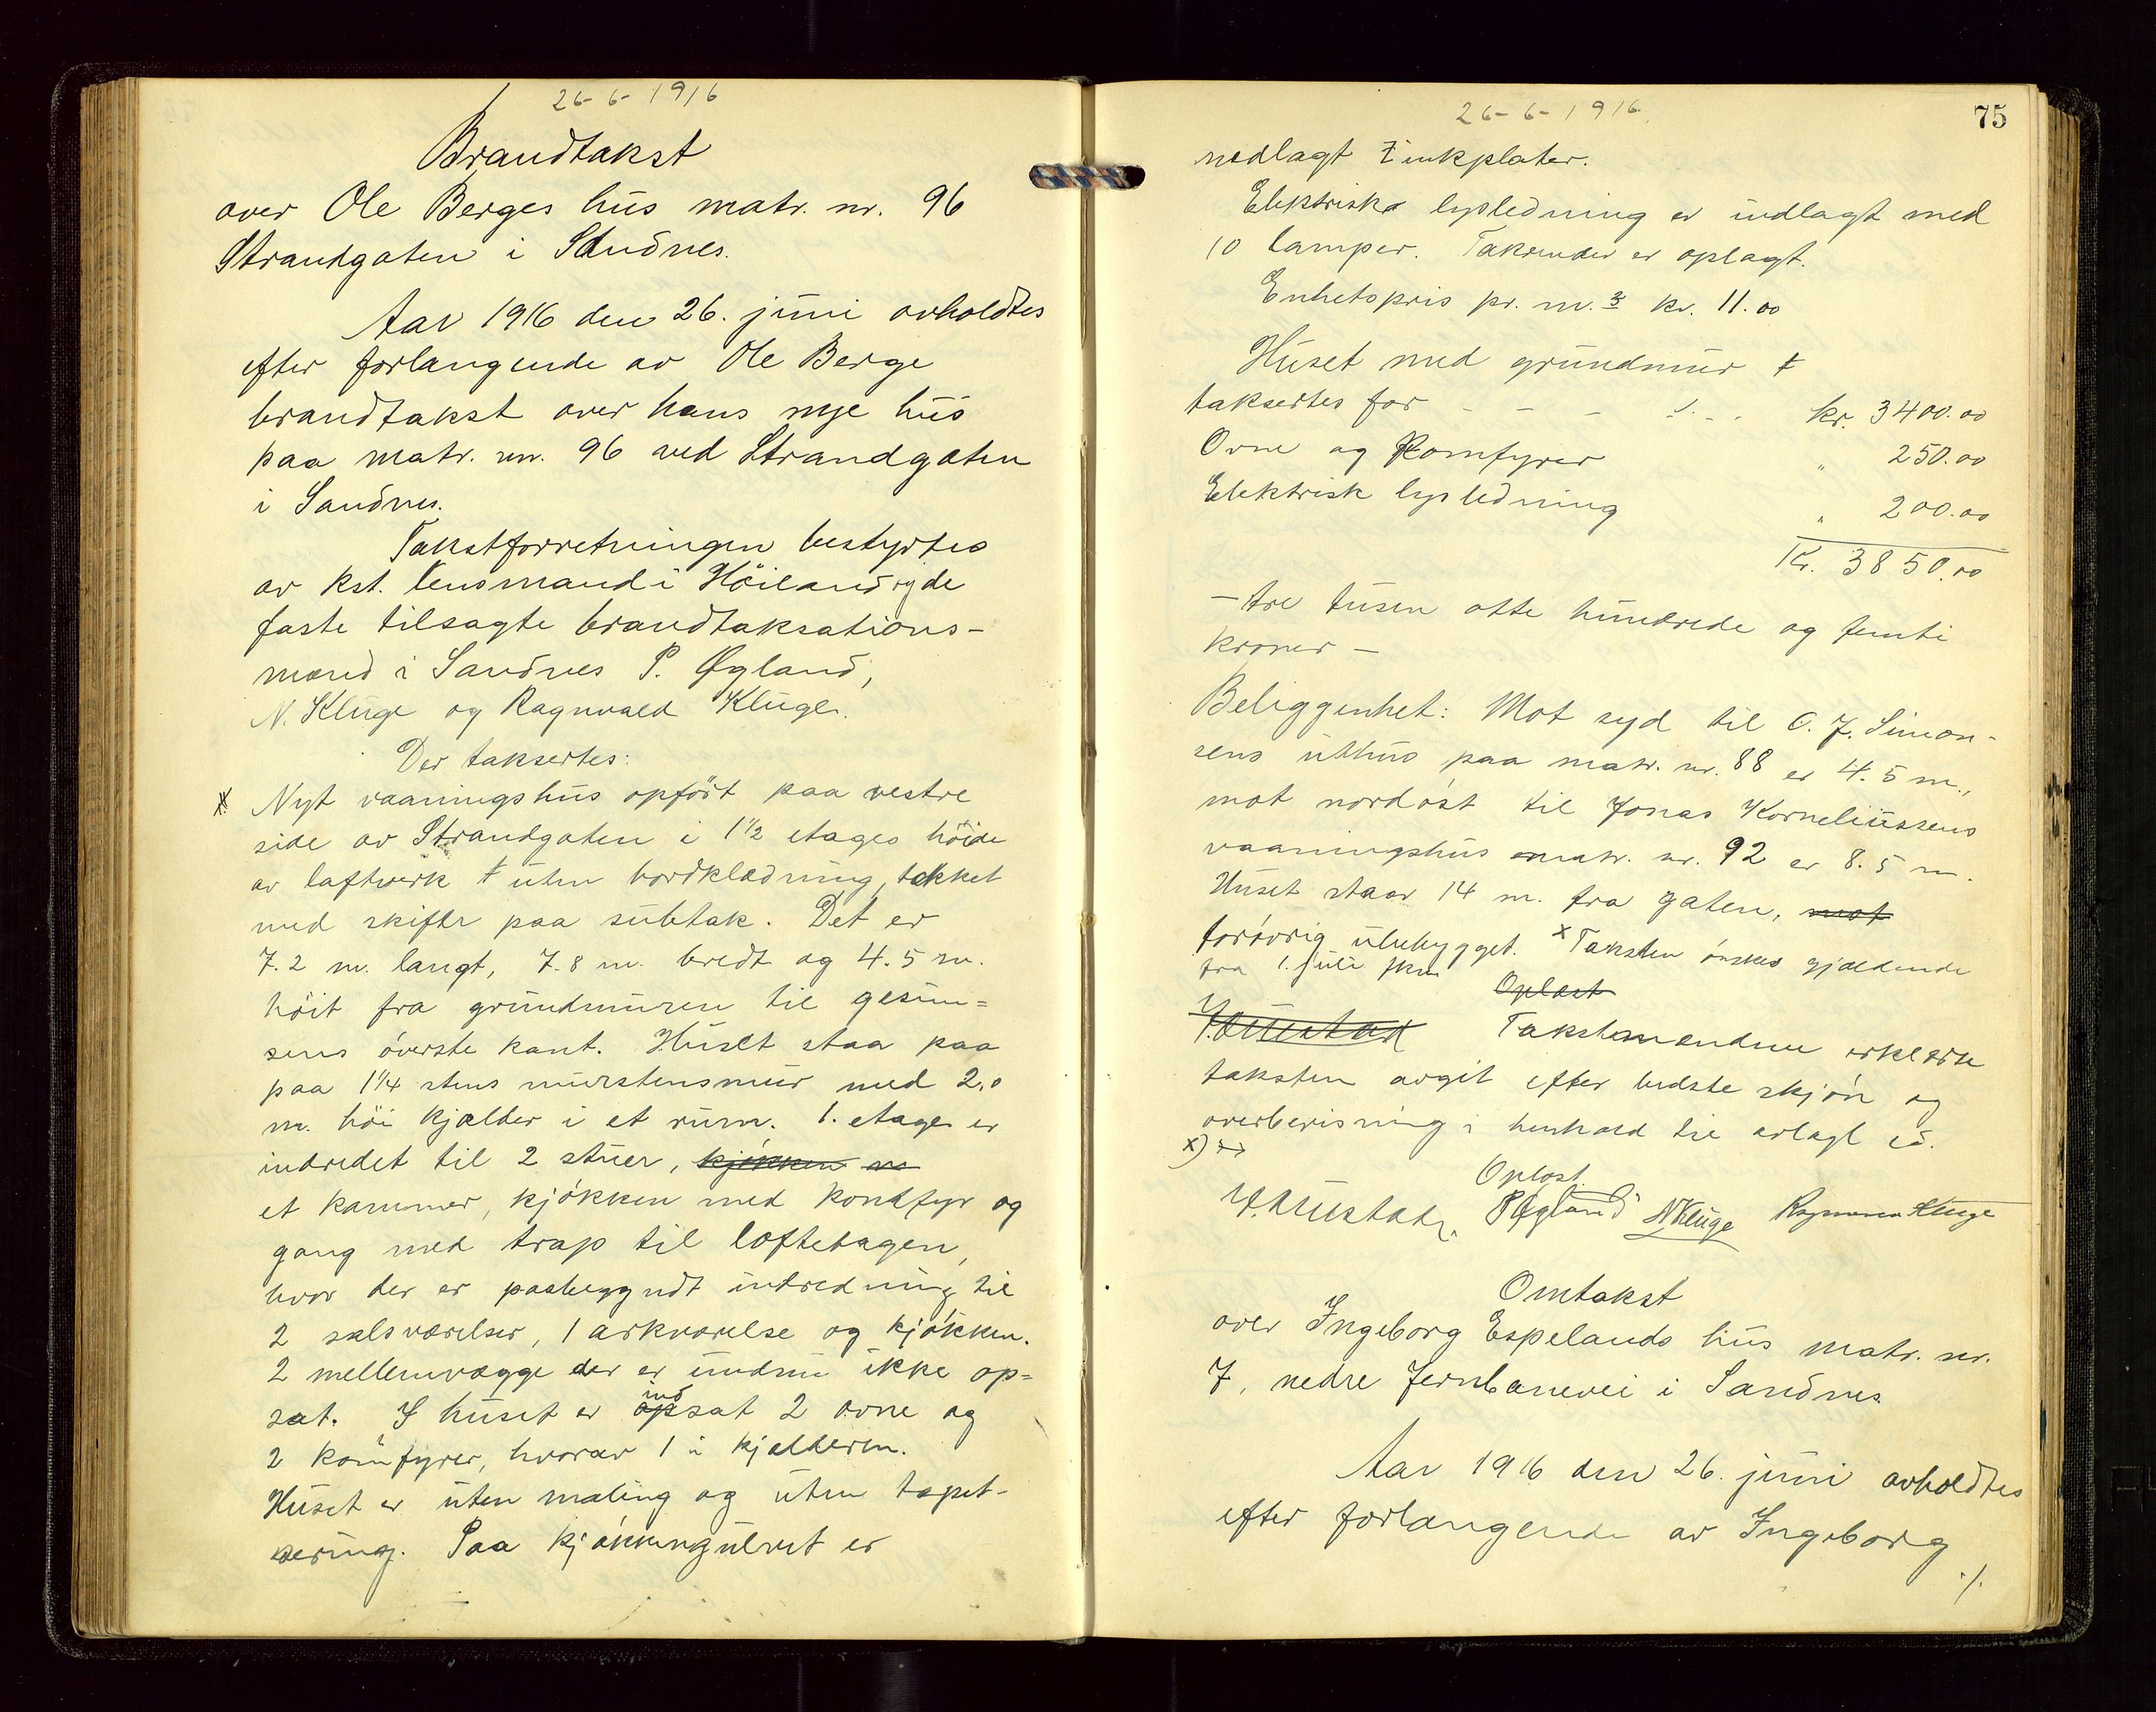 26-6-1916
Brandtakst
over Ole Berges hus matr. nr. 96
Strandgaten i Sandnes.
Aar 1916 den 26. juni avholdtes
efter forlangende av Ole Berge
brandtakst over hans nye hus
paa matr. nr. 96 ved Strandgaten
i Sandnes.
Takstforretningen bestyrtes
av kst. lensmand i Höiland og de
faste tilsagte brandtaksations-
mænd i Sandnes P. Øgland,
N. Kluge og Ragnvald Kluge.
Der taksertes:
Nyt vaaningshus opfört paa vestre
side av Strandgaten i 1½ etages höide
av laftverk uten bordklædning, tækket
med skifer paa subtak. Det er
7.2 m. langt, 7.8 m. bredt og 4.5 m.
höit fra grundmuren til gesim=
sens överste kant. Huset staa paa
paa 1¼ stens murstensmur med 2.0
m. höi kjælder i et rum. 1. etage er
indredet til 2 stuer, kjökken
et kammer, kjökken med komfyr og
gang med trap til loftetagen,
hvor der er paabegyndt indredning til
2 salsværelser, 1 arkværelse og kjökken.
2 mellemvægge der er endnu ikke op=
ind
sat. I huset er opsat 2 ovne og
2 komfyrer, hvorav 1 i kjælderen.
Huset er uten maling og uten tapet-
sering. Paa kjökkengulvet er
26-6-1916.
75
nedlagt zinkplater.
Elektrisk lysledning er indlagt med
10 lamper. Takrender er oplagt.
Enhetspris pr. m.3 kr. 11.00
Huset med grundmur
taksertes for - - - kr. 3400.00
Ovne og Komfyrer " 250.00
Elektrisk lysledning " 200.00
Kr. 3850.00
- tre tusen otte hundrede og femti
kroner -
Beliggenhet: Mot syd til O. J. Simon-
sens uthus paa matr. nr. 88 er 4.5 m.,
mot nordöst til Jonas Korneliussens
vaaningshus matr. nr. 92 er 8.5 m.
Huset staar 14 m. fra gaten, mot
forövrig ubebygget. x Taksten önskes gjældende
fra 1. juli
Oplæst
Takstmændene erklærte
taksten avgit efter bedste skjön og
overbevisning i henhold til avlagt ed.
x)
Oplæst.
P Øgland N Kluge Ragnvald Kluge
Omtakst
over Ingeborg Espelands hus matr. nr.
7, nedre Jernbanevei i Sandnes.
Aar 1916 den 26. juni avholdtes
efter forlangende av Ingeborg
./.